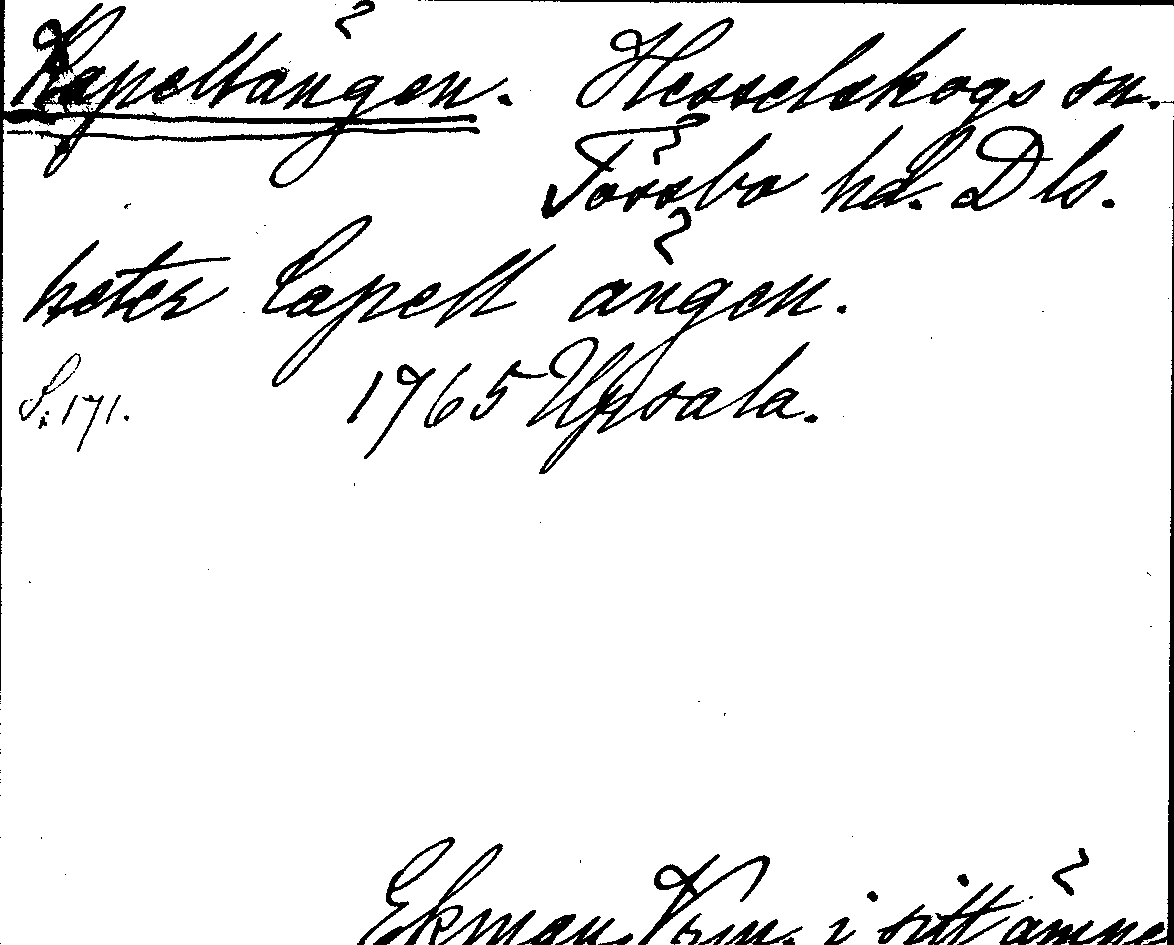 Kapellängen. Hesselskogs sn.
Tössbo hd. Dls.
heter Capell ängen.
S. 171. 1765 Upsala.
Ekman, Vrm. i sitt ämne